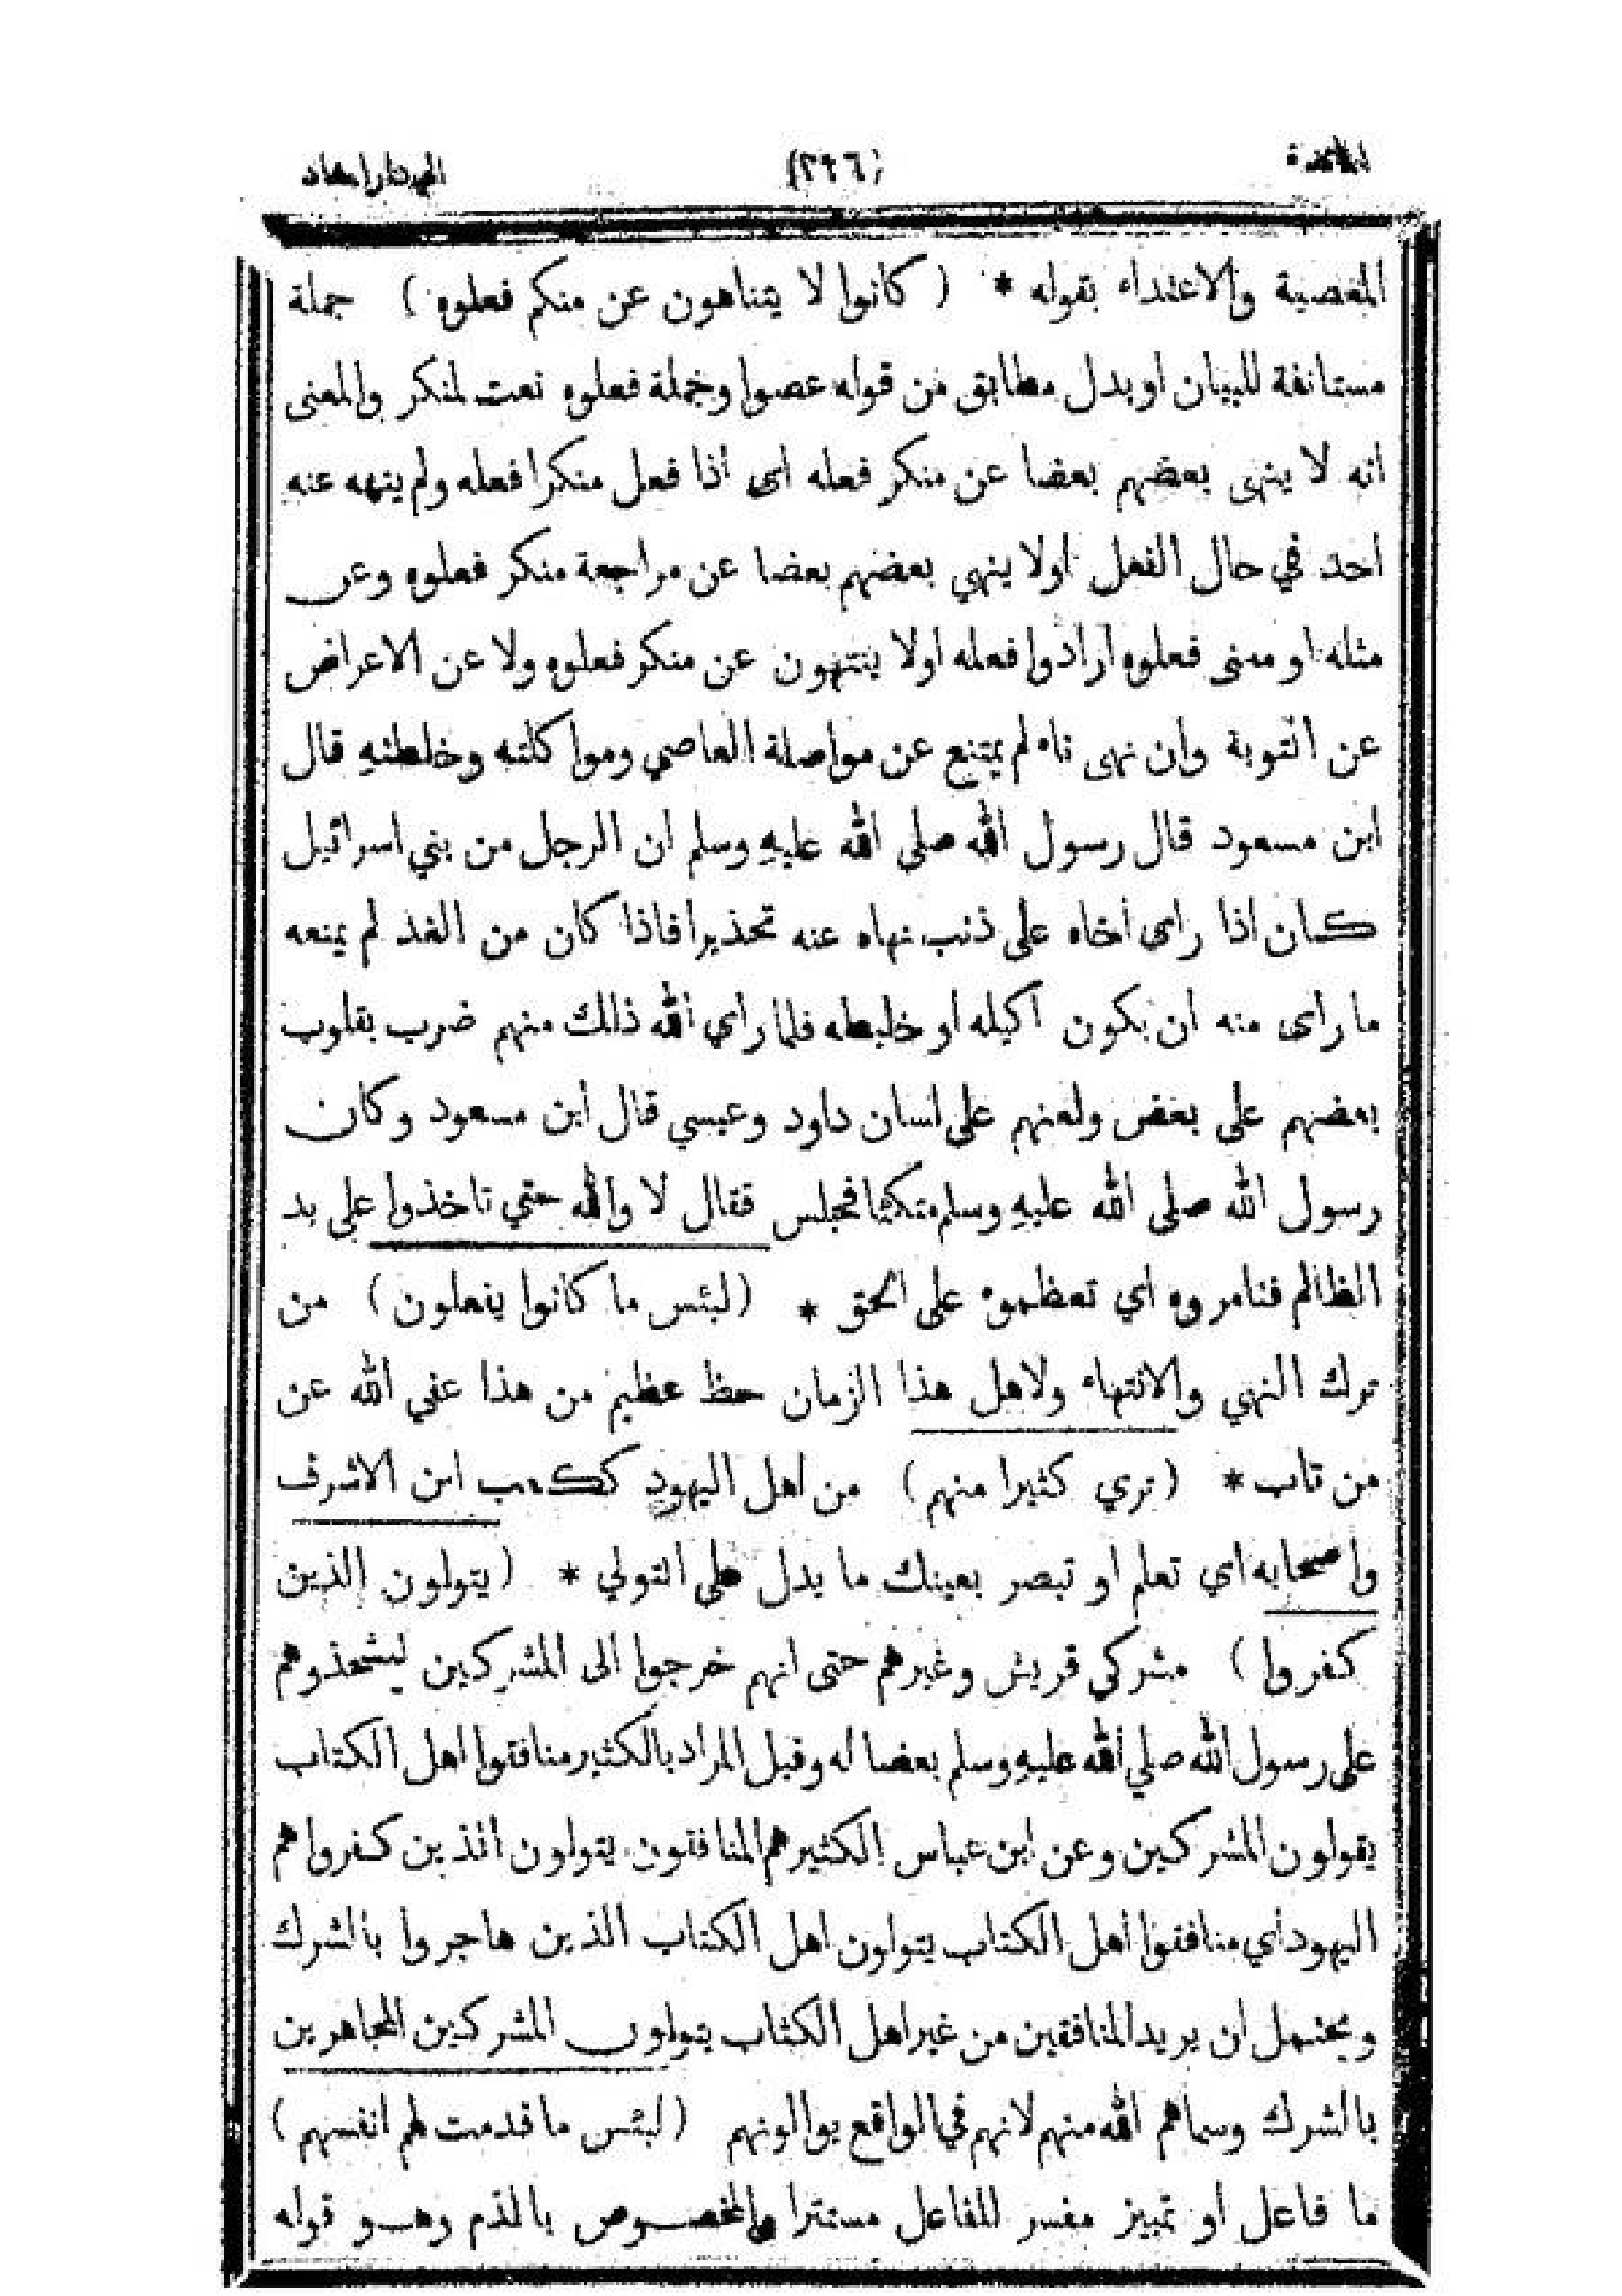 المائدة (٢٩٦) الى دار المعاد
المعصية والاعتداء بقوله * (كانوا لا يتناهون عن منكم فعلوه) جملة
مستانفة للبيان او بدل مطابق من قوله عصوا وجملة فعلوه نعت لمنكر والمعنى
انه لا ينهى بعضهم بعضا عن منكر فعله اى اذا فعل منكرا فعله ولم ينهه عنه
احد في حال الفعل اولا ينهي بعضهم بعضا عن مراجعة منكر فعلوه وعن
مثله او معنى فعلوه ارادوا فعله اولا ينتهون عن منكر فعلوه ولا عن الاعراض
عن التوبة وان نهى ناه لم يمتنع عن مواصلة العاصي ومواكلته وخلطته قال
ابن مسعود قال رسول الله صلى الله عليه وسلم ان الرجل من بني اسرائيل
كان اذا راى أخاه على ذنب نهاه عنه تحذيرا فاذا كان من الغد لم يمنعه
ما راى منه ان يكون اكيله او خليطه فلما راى الله ذلك منهم ضرب بقلوب
بعضهم على بعض ولعنهم على لسان داود وعيسي قال ابن مسعود وكان
رسول الله صلى الله عليه وسلم متكئا فجلس فقال لا والله حتي تاخذوا على يد
الظالم فتامروه اي تعظموه على الحق * (لبئس ما كانوا يفعلون) من
ترك النهي والانتهاء ولاهل هذا الزمان حظ عظيم من هذا عفي الله عن
من تاب * (تري كثيرا منهم) من اهل اليهود ككعب ابن الاشرف
واصحابه اي تعلم او تبصر بعينك ما يدل على التولي * (يتولون الذين
كفروا) مشركي قريش وغيرهم حتى انهم خرجوا الى المشركين ليشحذوهم
على رسول الله صلي الله عليه وسلم بعضا له وقيل المراد بالكثير منافقوا اهل الكتاب
يتولون المشركين وعن ابن عباس الكثير هم المنافقون يتولون الذين كفروا هم
اليهود أي منافقوا أهل الكتاب يتولون اهل الكتاب الذين هاجروا بالشرك
ويحتمل ان يريد المنافقين من غير اهل الكتاب يتولون المشركين المجاهرين
بالشرك وسماهم الله منهم لانهم في الواقع يوالونهم (لبئس ما قدمت لهم انفسهم)
ما فاعل او تمييز مفسر للفاعل مستترا والمخصوص بالذم وهو قوله